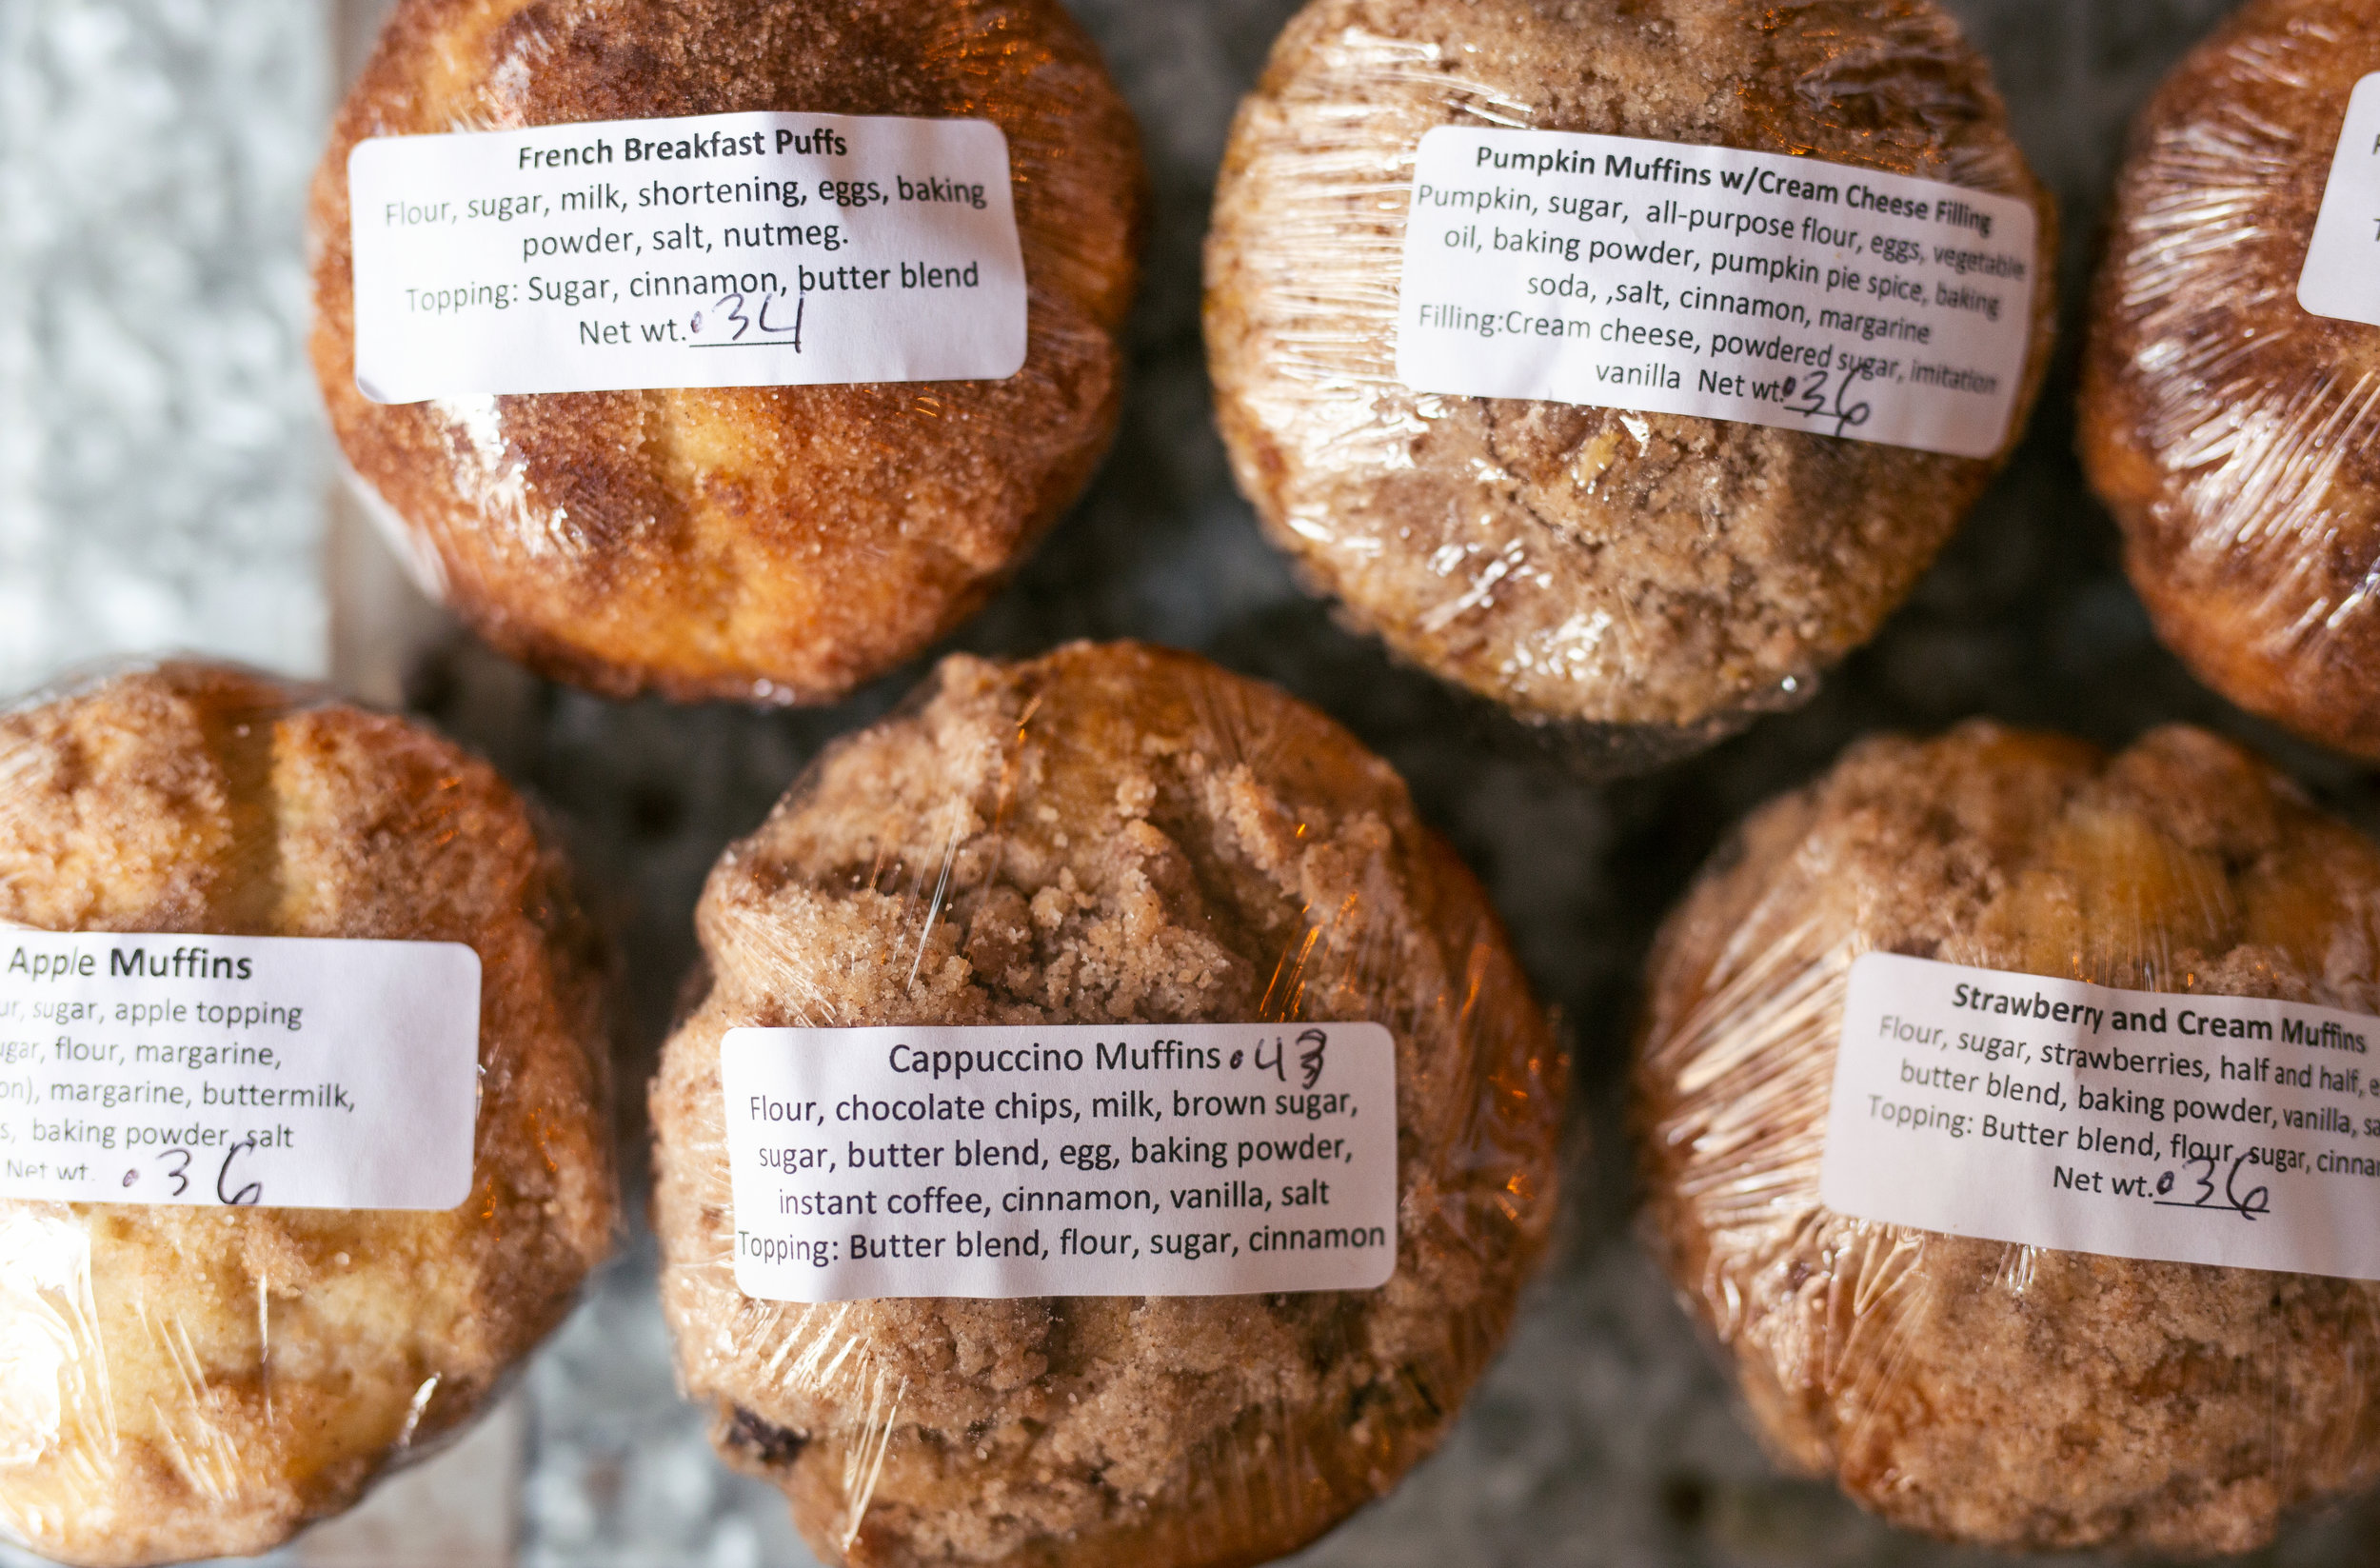 French Breakfast Puffs
Flour, sugar, milk, shortening, eggs, baking
powder, salt, nutmeg.
Topping: Sugar, cinnamon, butter blend
Net wt. .34
Pumpkin Muffins w/Cream Cheese Filling
Pumpkin, sugar, all-purpose flour, eggs, vegetable
oil, baking powder, pumpkin pie spice, baking
soda, ,salt, cinnamon, margarine
Filling:Cream cheese, powdered sugar, imitation
vanilla Net wt. .36
Apple Muffins
sugar, apple topping
flour, margarine,
margarine, buttermilk,
baking powder, salt
Net wt. .36
Cappuccino Muffins .43
Flour, chocolate chips, milk, brown sugar,
sugar, butter blend, egg, baking powder,
instant coffee, cinnamon, vanilla, salt
Topping: Butter blend, flour, sugar, cinnamon
Strawberry and Cream Muffins
Flour, sugar, strawberries, half and half,
butter blend, baking powder, vanilla,
Topping: Butter blend, flour, sugar,
Net wt. .36